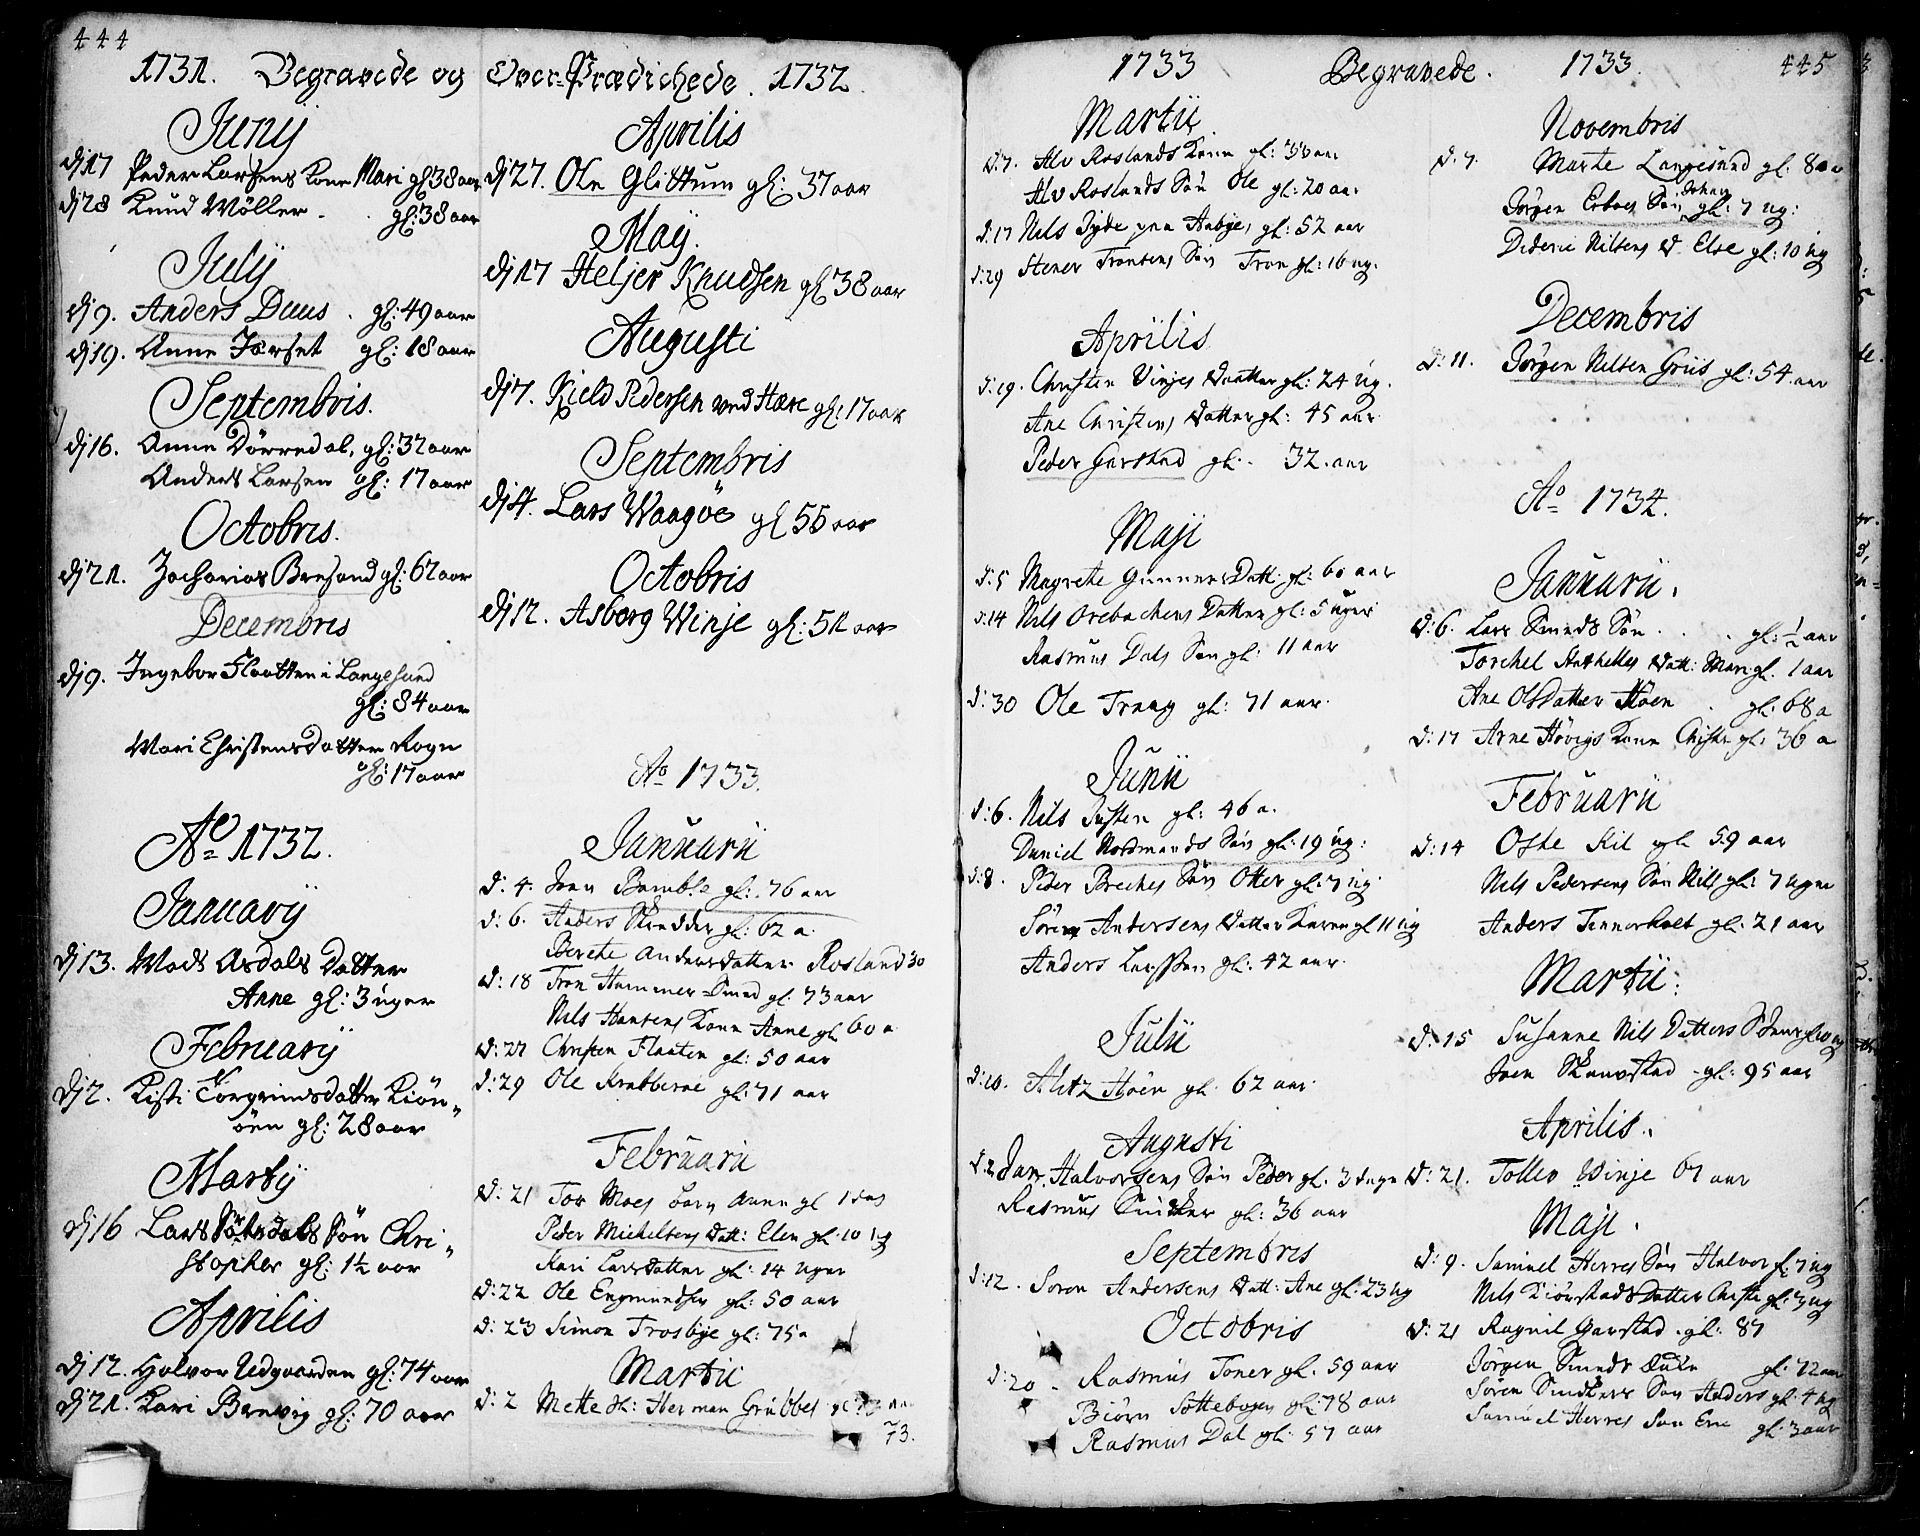 444
1731. Begravede og Over-Prædichede. 1732.
Junij
dj 17 Peder Larsens Kone Mari gl: 38 aar
dj 28 Knud Möller. gl: 38 aar
Julij
dj 9. Anders Duus. gl: 49 aar
dj 19. Anne Førset gl: 18 aar
Septembris.
dj 16. Anne Dörredal, gl: 32 aar
Anders Larsen gl: 17 aar
Octobris.
dj 21. Zacharias Bresand gl: 62 aar
Decembris
dj 9. Ingebor Flaatten i Langesund
gl: 84 aar
Mari Christensdatter Rogn
gl: 17 aar
Ao 1732.
Januarij
dj 13. Mads Asdals Datter
Anne gl: 3 uger
Februarij
dj 2. Kisti Torgrimsdatter Kiön„
öen gl: 28 aar
Martij
dj 16 Lars Søn Chri„
stopher gl: 1½ aar
Aprilis
dj 12. Halvor Udgaarden gl: 74 aar
dj 21. Kari Brevig gl: 70 aar
Aprilis
dj 27. Ole Glittum gl: 37 aar
Maij.
dj 17 Heljer Knudsen gl: 38 aar
Augusti
dj 7. Kield Pedersen ved Hære gl: 17 aar
Septembris
dj 4. Lars Waagöe gl: 55 aar
Octobris
dj 12. Asborg Winje gl: 51 aar
Ao 1733.
Januarii
d: 4. Jens Bamble gl: 76 aar
d: 6. Anders Skredder gl: 62 a.
Berethe Andersdatter Rosland 30
d: 18 Tron Hammer-Smed gl: 73 aar
Nils Hansens Kone Anne gl: 60 a
d: 27 Christen Flaaten gl: 50 aar
d: 29 Ole Krabberøe gl: 71 aar
Februarii
d: 21 Tor Moes barn Anne gl 1 dag
Peder Michelsens Datt: Elen gl: 10 ug
Kari Larsdatter gl: 14 uger
d: 22 Ole Engmundsen gl: 50 aar
d: 23 Simon Trosbye gl: 75 a
Martii
d: 2 Mette Sl: Herman Grubbes gl: 73 aar
73.
1733 Begravede. 1733. 445
Martii
d: 7. Alv Roslands Kone gl: 33 aar
Alv Roslands Sön Ole gl: 20 aar
d: 17 Nils paa Aabye, gl: 52 aar
d: 29 Stener Tronsens Sön Tron gl: 16 ug.
Aprilis
d: 19. Christen Vinjes Daatter gl: 24 ug.
Ane Christens Datter gl: 45 aar
Peder Garstad gl: 32. aar
Maji
d: 5 Magrete Gunners Datt: gl: 60 aar
d: 14 Nils Orebachens Datter gl: 5 uger
Rasmus Dals Søn gl: 11 aar
d: 30 Ole Traag gl: 71 aar.
Junii
d: 6. Nils Justen gl: 46 a.
Daniel Nordmands Sön gl: 19 ug:
d: 8. Peder Breches Sön Otter gl: 7 ug.
Sören Andersens Datter Karen gl 11 ug
Anders Larssen gl: 42 aar.
Julii
d: 10. Alitz Høen gl. 62 aar.
Augusti
d: 2 Jan Halvorsens Sön Peder gl: 3 dage
Rasmus Snidker gl: 36 aar
Septembris
d: 12. Soren Andersens Datt: Ane gl: 23 ug
Octobris
d: 20. Rasmus Toner gl. 59 aar
Biörn gl: 78 aar
Rasmus Dal gl: 57 aar
Novembris
d: 7. Marte Langesund gl: 80 a
Jörgen Erboes Sön Johan gl: 7 ug:
Dideric Nilsens D. Else gl: 10 ug
Decembris
d: 11. Jörgen Nilsen Griis gl: 54 aar
Ao 1734.
Januarii.
d: 6. Lars Smeds Sön . . . gl: ½ aar
Torchel Hathelles Datt: Mari gl. 1 aar
Ane Olsdatter Høen . gl: 68 a
d: 17 Arne Hövigs Kone Christe gl: 36 a
Februarii
d: 14 Oske Kil gl. 59 aar
Nils Pedersens Sön Nils gl: 7 uger
Anders Tennerholt gl: 21 aar
Martii:
d: 15 Susanne Nils Datters gl 10 ug
Joen Skaugstad gl: 95 aar
Aprilis.
d: 21. Tollev Winje 67 aar
Maji.
d: 9. Samuel Herres Sön Halvor gl 7 ug
Nils Kiørstads Datter Christe gl: 3 ug
d: 21 Ragnil Garstad gl: 87
Jörgen Smeds Enke gl: 72 aar
Sören Snidkers Sön Anders gl: 4 ug
Samuel Herres Søn Erie gl: 3 aar